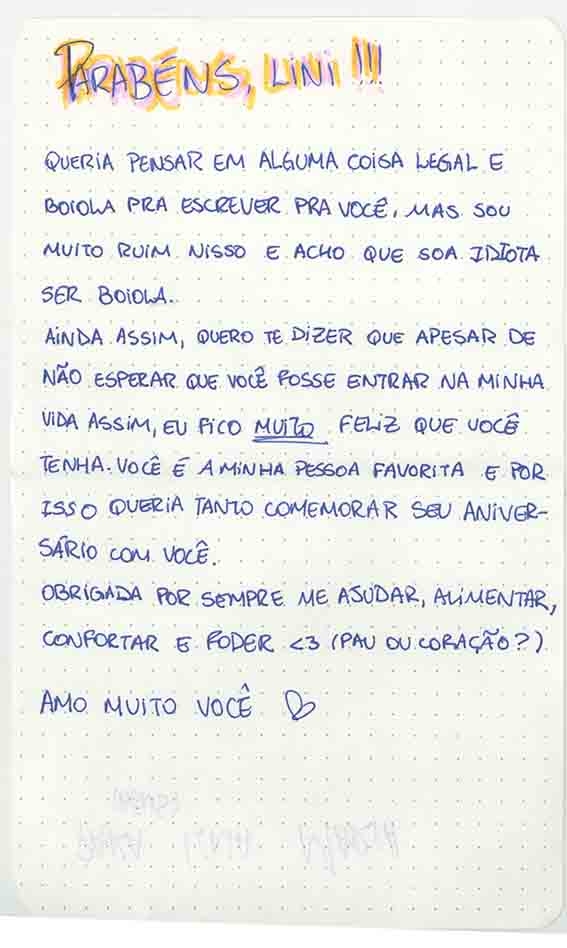 PARABÉNS, LINI!!!
QUERIA PENSAR EM ALGUMA COISA LEGAL E
BOIOLA PRA ESCREVER PRA VOCÊ, MAS SOU
MUITO RUIM NISSO E ACHO QUE SOA IDIOTA
SER BOIOLA.
AINDA ASSIM, QUERO TE DIZER QUE APESAR DE
NÃO ESPERAR QUE VOCÊ FOSSE ENTRAR NA MINHA
VIDA ASSIM, EU FICO MUITO FELIZ QUE VOCÊ
TENHA. VOCÊ É A MINHA PESSOA FAVORITA E POR
ISSO QUERIA TANTO COMEMORAR SEU ANIVER-
SÁRIO COM VOCÊ.
OBRIGADA POR SEMPRE ME AJUDAR, ALIMENTAR,
CONFORTAR E FODER <3 (PAU OU CORAÇÃO?)
AMO MUITO VOCÊ ♡